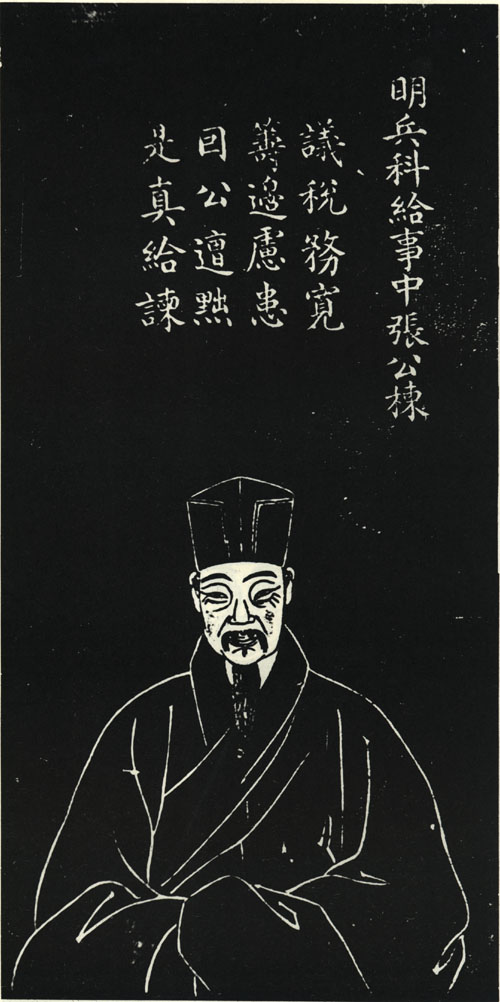 明兵科給事中張公棟
議稅務寬
籌邊慮患
囙公遭黜
是真給諫